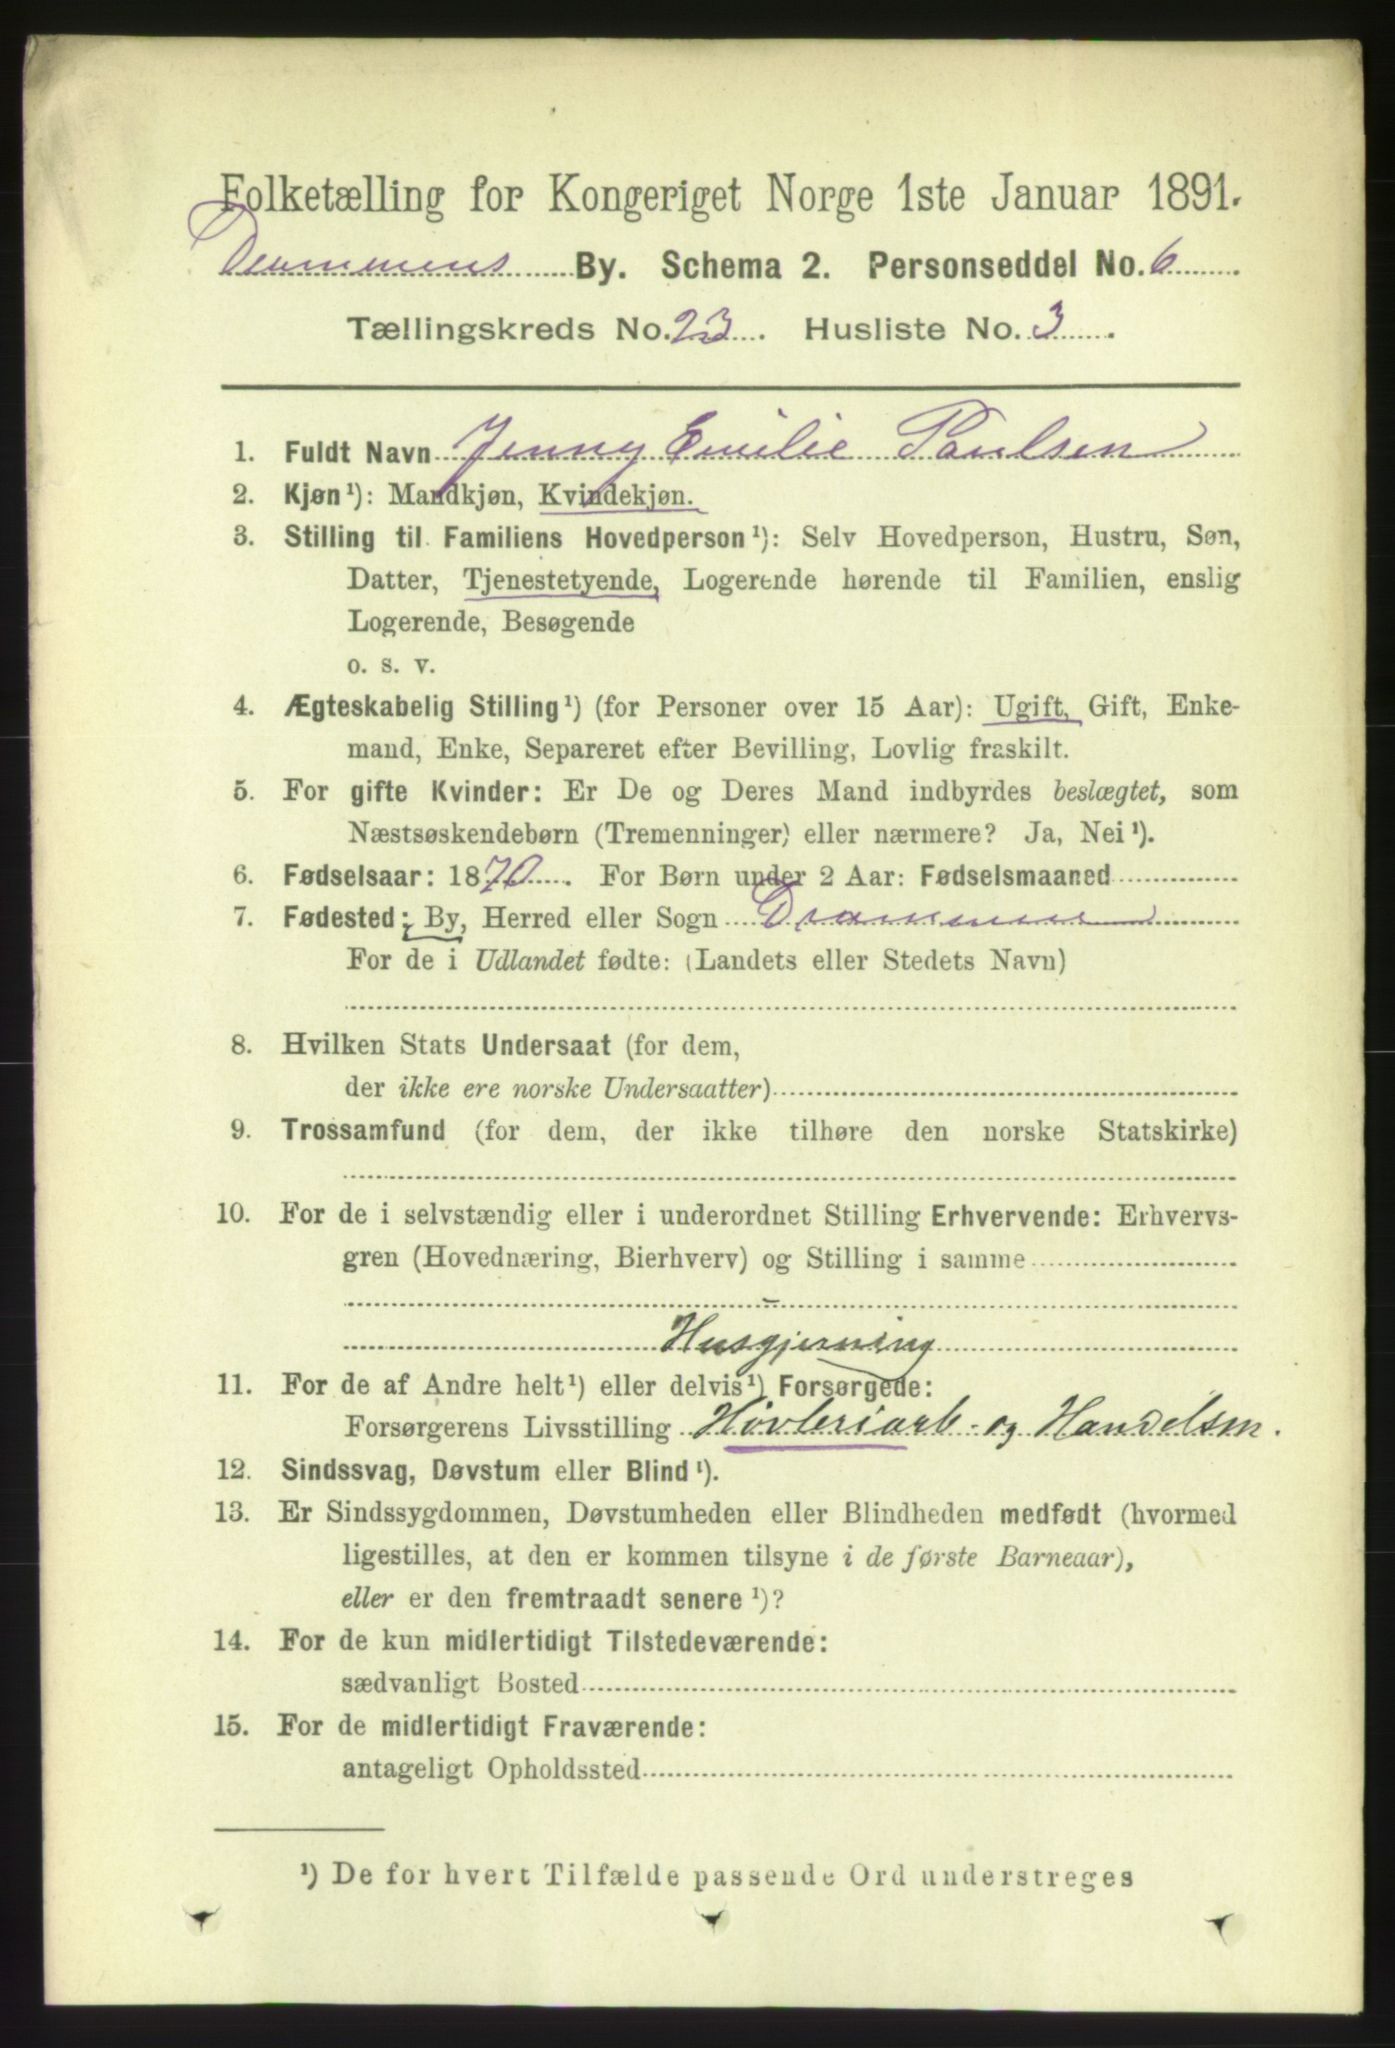 Folketælling for Kongeriget Norge 1ste Januar 1891.
Drammens By. Schema 2. Personseddel No. 6
Tællingskreds No. 23. Husliste No. 3.
1. Fuldt Navn Jenny Emilie Paulsen
2. Kjøn¹): Mandkjøn, Kvindekjøn.
3. Stilling til Familiens Hovedperson¹): Selv Hovedperson, Hustru, Søn,
Datter, Tjenestetyende, Logerende hørende til Familien, enslig
Logerende, Besøgende
o. s. v.
4. Ægteskabelig Stilling¹) (for Personer over 15 Aar): Ugift, Gift, Enke-
mand, Enke, Separeret efter Bevilling, Lovlig fraskilt.
5. For gifte Kvinder: Er De og Deres Mand indbyrdes beslægtet, som
Næstsøskendebørn (Tremenninger) eller nærmere? Ja, Nei¹).
6. Fødselsaar: 1870. For Børn under 2 Aar: Fødselsmaaned
7. Fødested: By, Herred eller Sogn Drammen
For de i Udlandet fødte: (Landets eller Stedets Navn)
8. Hvilken Stats Undersaat (for dem,
der ikke ere norske Undersaatter)
9. Trossamfund (for dem, der ikke tilhøre den norske Statskirke)
10. For de i selvstændig eller i underordnet Stilling Erhvervende: Erhvervs-
gren (Hovednæring, Bierhverv) og Stilling i samme
Husgjerning
11. For de af Andre helt¹) eller delvis¹) Forsørgede:
Forsørgerens Livsstilling Høvleriarb- og Handelsm.
12. Sindssvag, Døvstum eller Blind¹).
13. Er Sindssygdommen, Døvstumheden eller Blindheden medfødt (hvormed
ligestilles, at den er kommen tilsyne i de første Barneaar),
eller er den fremtraadt senere¹)?
14. For de kun midlertidigt Tilstedeværende:
sædvanligt Bosted
15. For de midlertidigt Fraværende:
antageligt Opholdssted
¹) De for hvert Tilfælde passende Ord understreges